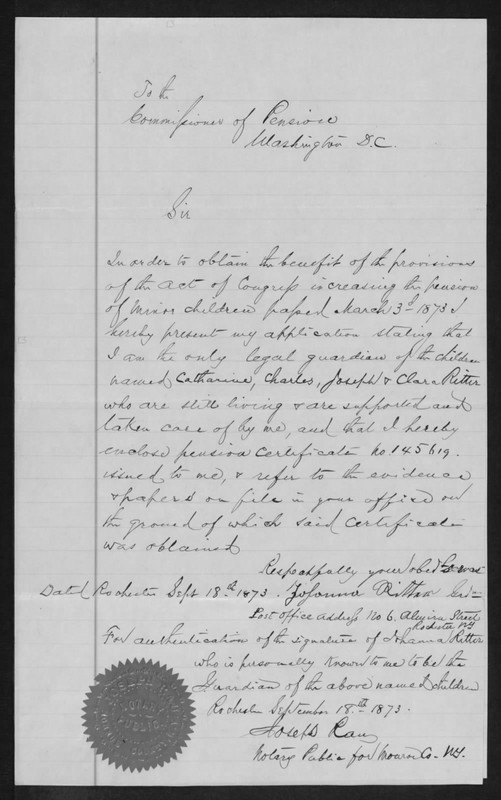 To the
Commissioner of Pension
Washington D.C.
Sir
In order to obtain the benefit of the provisions
of the Act of Congress increasing the pension
of minor children passed March 3d 1873 I
hereby present my application stating that
I am the only legal guardian of the children
named Catharine, Charles, Joseph & Clara Ritter
who are still living & are supported and
taken care of by me, and that I hereby
enclose pension certificate No 145619.
issued to me, & refer to the evidence
& papers on file in your office on
the ground of which said certificate
was obtained
Respectfully your obed
Dated Rochester Sept 18th 1873. Johanna Grd=
Post Office Address No 6. Street
Rochester NY
For authentication of the signature of Johanna Ritter
who is personally known to me to be the
Guardian of the above named children
Rochester September 18th 1873.
Joseph Rau
Notary Public for Monroe Co. NY.
NOTARY
PUBLIC